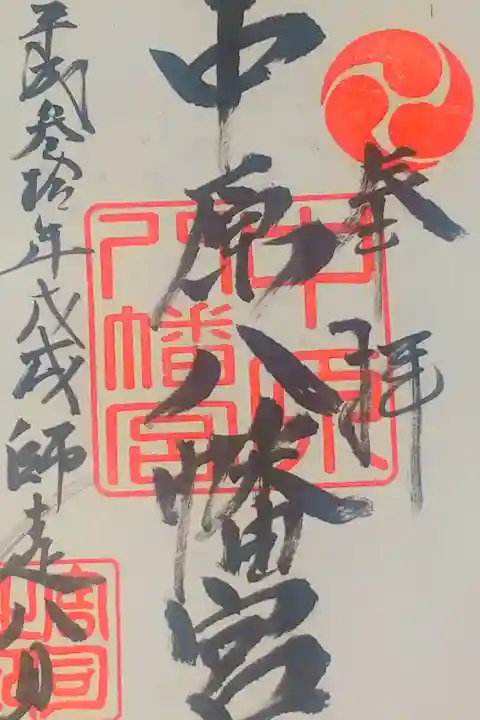 奉拝
中原八幡宮
中原
八幡宮
平成参拾年戊戌師走八日